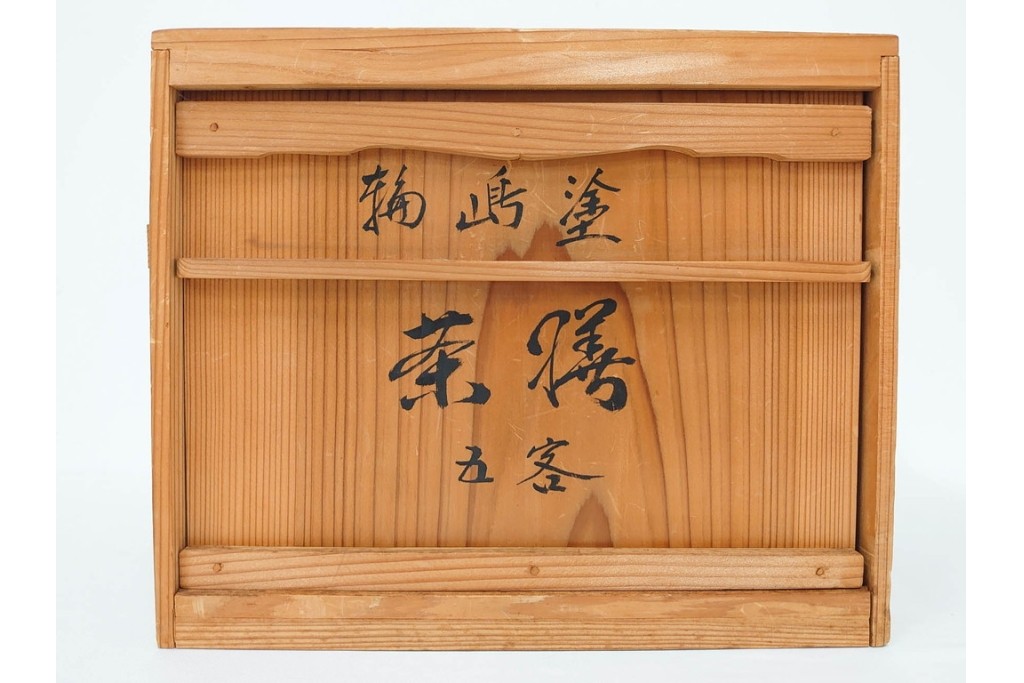 輪島塗
茶膳
五客